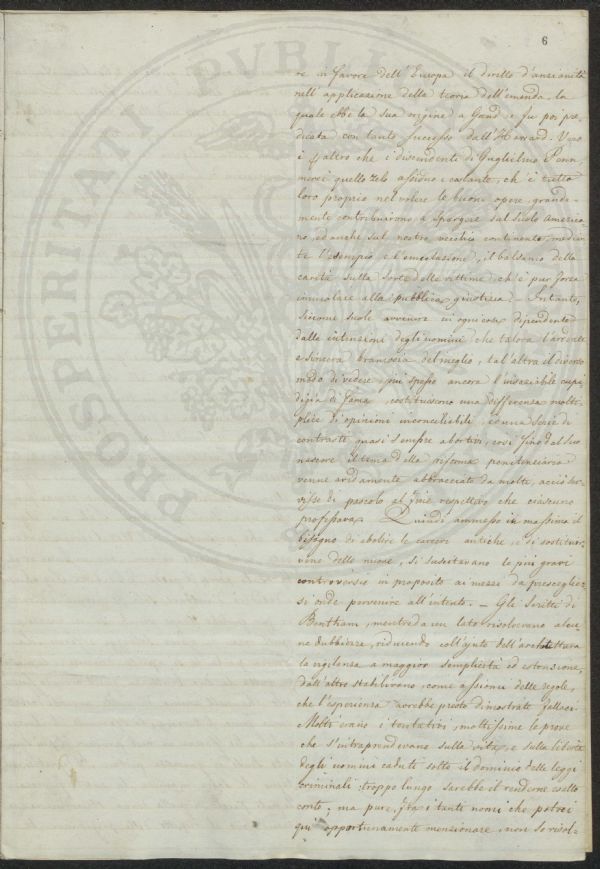 6
re in favore dell'Europa il diretto d'anzianità
nell'applicazione della teoria dell'emenda, la
quale ebbe la sua origine a Gand e fu poi pre-
dicata con tanto successo dall'Howard. Vero
è d'altro che i discendenti di Guglielmo Penn,
mercè quello zelo assiduo e costante, ch'è tutto
loro proprio nel volere le buone opere, grande-
mente contribuirono a spargere sul suolo America-
no, ed anche sul nostro vecchio continente, median-
te l'esempio e l'emulazione, il balsamo della
carità sulla sorte delle vittime ch'è pur forza
immolare alla pubblica giustizia. Intanto,
siccome suole avvenire in ogni cosa dipendente
dalle intenzioni degli uomini che talora l'ardente
e sincera bramosia del meglio, tal'altra il diverso
modo di vedere, più spesso ancora l'insaziabile cupi-
digia di fama, costituiscono una differenza molti-
plice di opinioni inconciliabili, ed una serie di
contrasti quasi sempre abortivi, così fino dal suo
nascere il tema della riforma penitenziaria
venne avidamente abbracciato da molti, acciò ser-
visse di pascolo al fine rispettivo che ciascuno
professava. Quindi ammesso in massima il
bisogno di abolire le carceri antiche, e di sostituir-
vene delle nuove, si suscitavano le più gravi
controversie in proposito ai mezzi da presceglier-
si onde pervenire all'intento. — Gli scritti di
Bentham, mentre da un lato risolvevano alcu-
ne dubbiezze, riducendo coll'ajuto dell'architettura
la vigilanza a maggior semplicità ed estensione,
dall'altro stabilivano, come assiomi delle regole,
che l'esperienza avrebbe presto dimostrate fallaci.
Molti erano i tentativi, moltissime le prove
che s'intraprendevano sulla vita, e sulla libertà
degli uomini caduti sotto il dominio delle leggi
criminali: troppo lungo sarebbe il renderne esatto
conto; ma pure, fra i tanti nomi che potrei
qui opportunamente menzionare, non so risol-
PROSPERITATI PVBLI